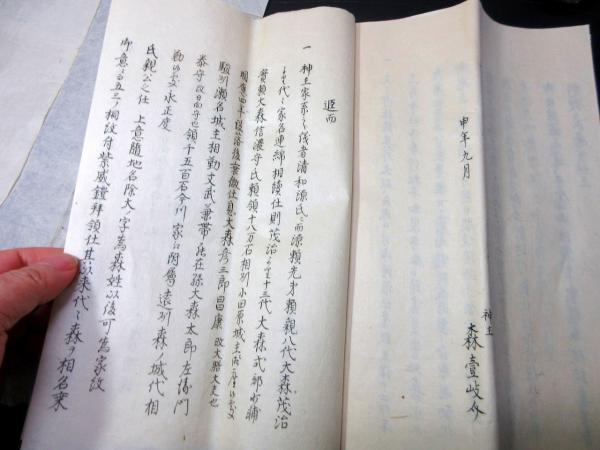 申年九月
神主
森壹岐介
追而
一 神主家系之儀者清和源氏ニ而源頼光弟頼親八代大森茂治
より代々家名連綿相続仕則茂治より十三代大森式部少輔
實頼大森信濃守氏頼領十八万石相刕小田原城主
明應四年落後
駿刕瀬名城主相勤文武兼帯ニ在孫大森太郎左衛門
泰守改日向守也領千五百石今川家に附属遠刕森ノ城代相
勤 永正度
氏親公之仕 上意随地名除大ノ字為森姓以後可為家紋
御意ニ五三ノ桐紋付紫威鎧拝領仕其以来代々森ヲ相名乗